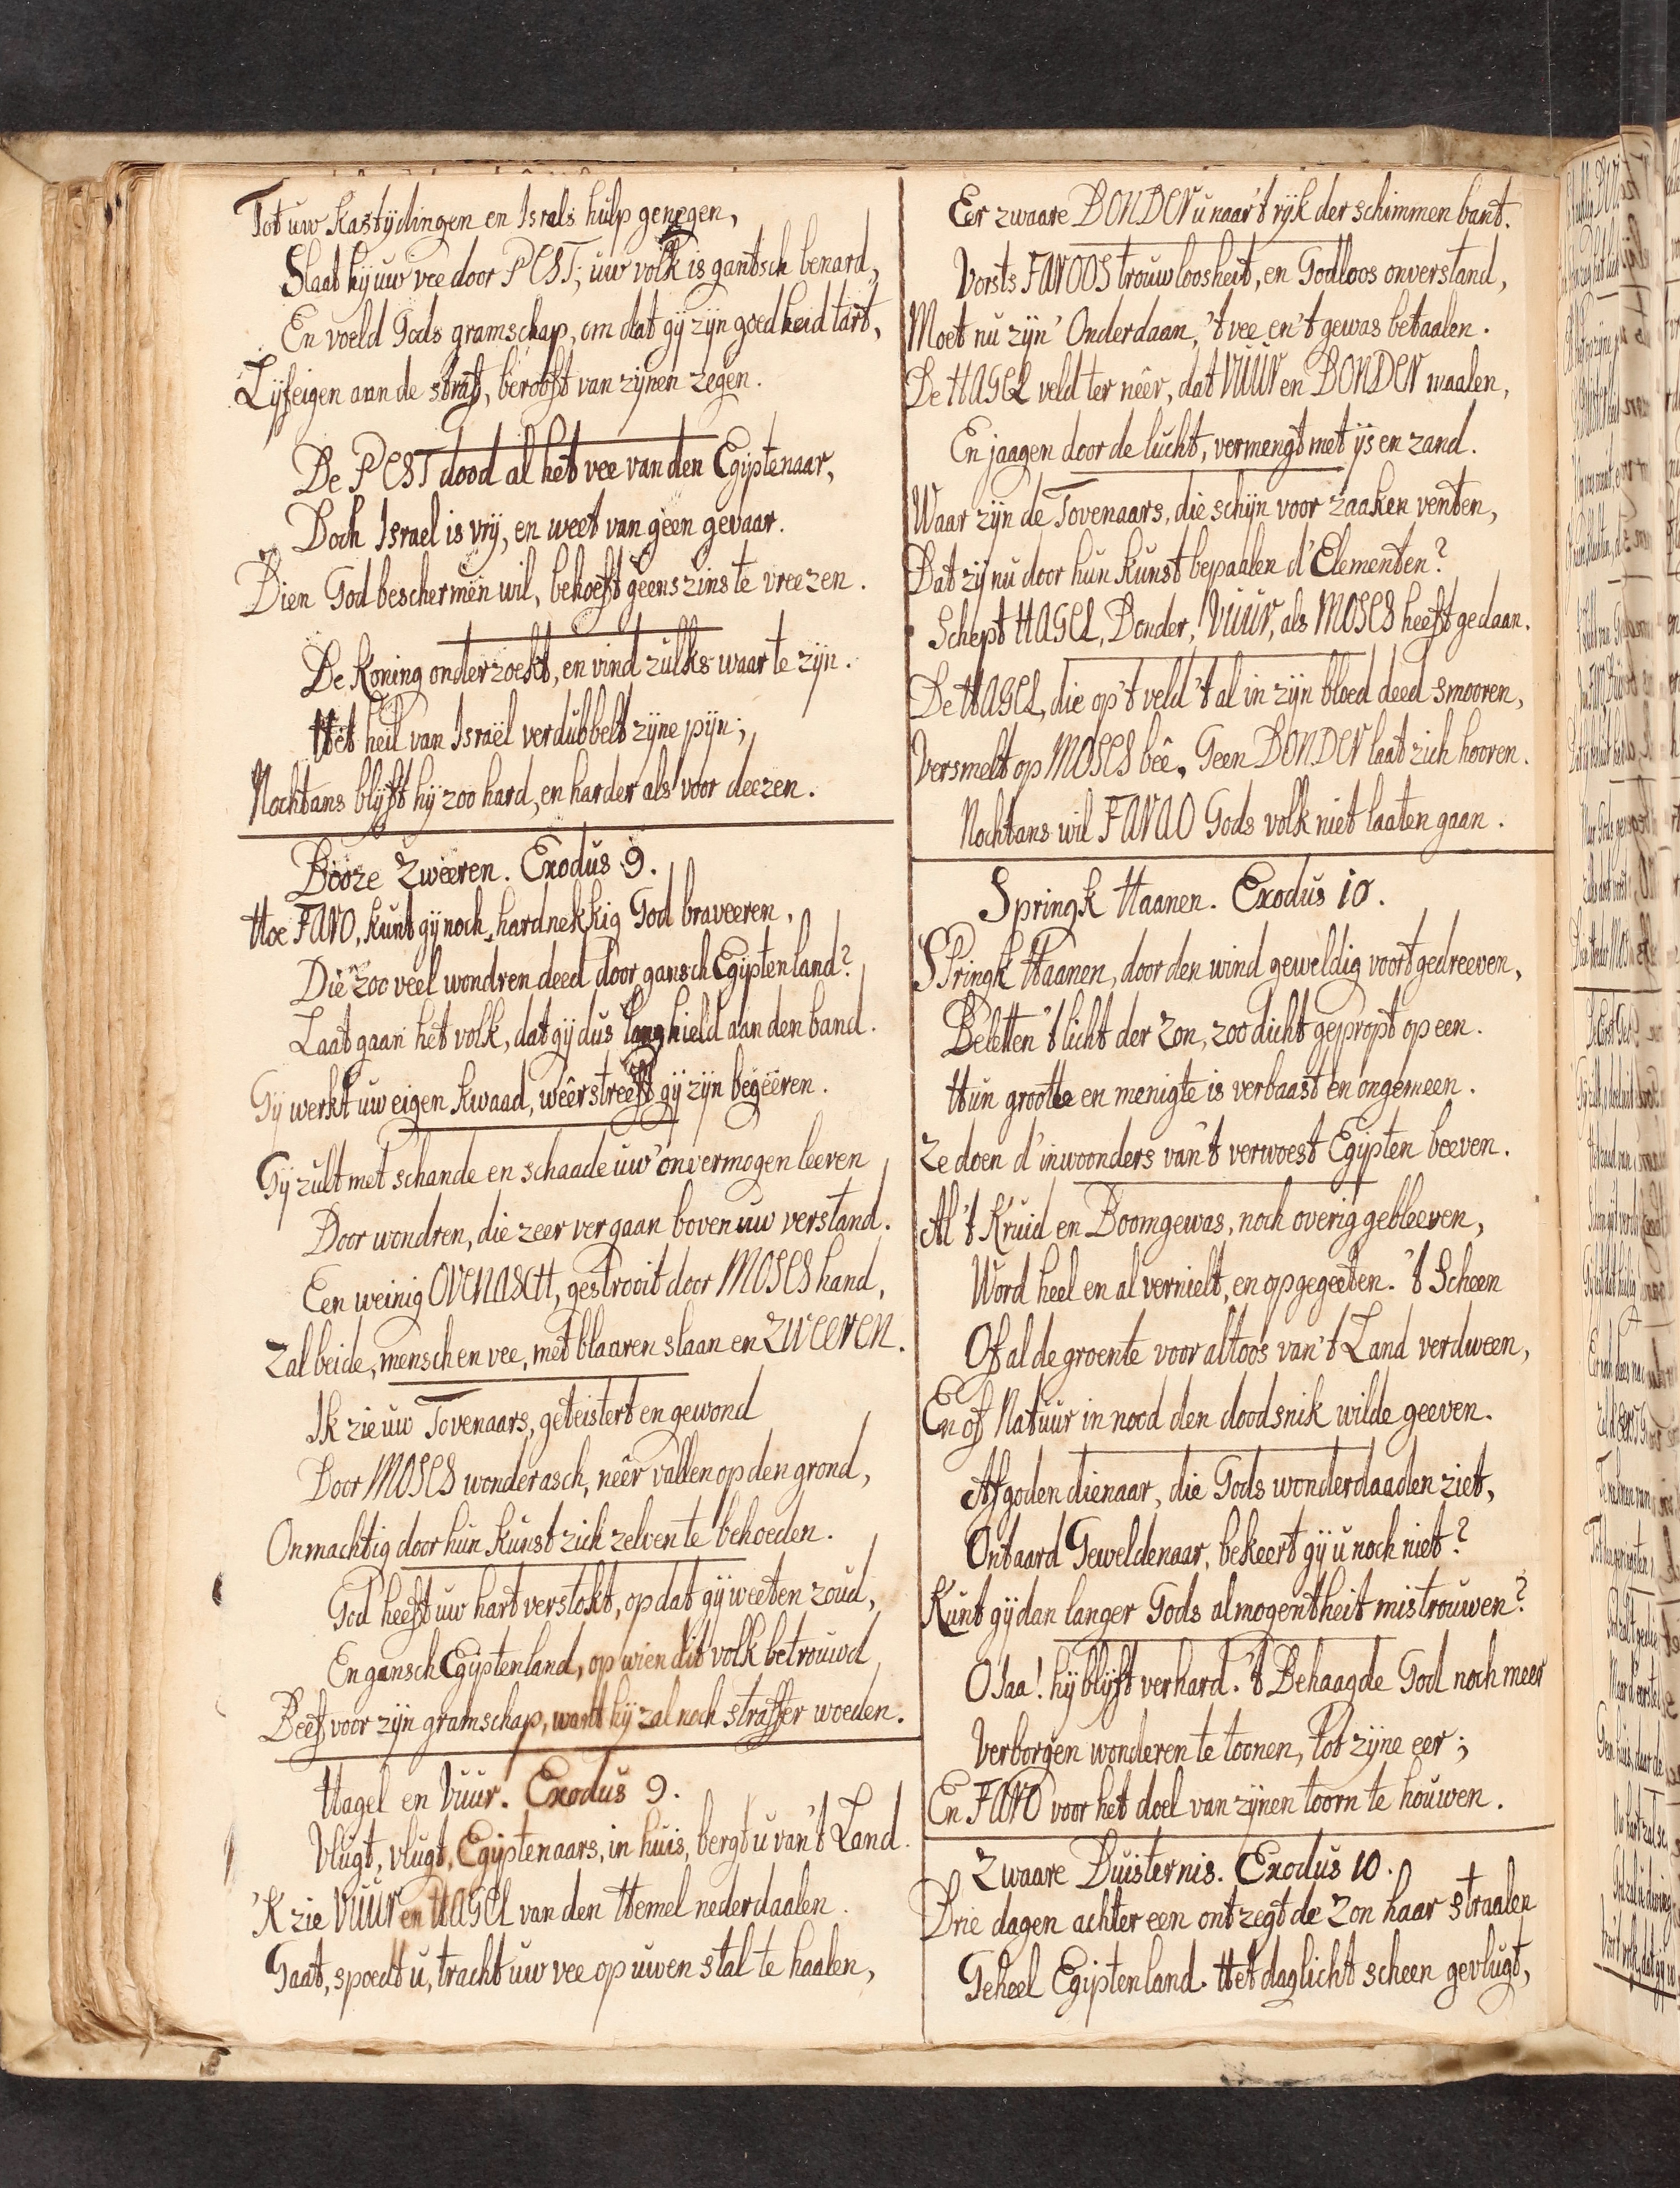 Tot uw kastydingen en Israls hulp genegen,
Slaat hy uw vee door PEST; uw volk is gantsch benard,
En voeld Gods gramschap, om dat gy zyn goedheid tart,
Lyfeigen aan de straf, berooft van zynen zegen.
De PEST dood al het vee van den Egiptenaar,
Doch Israel is vry, en weet van geen gevaar.
Dien God beschermen wil, behoeft geenszins te vreezen.
De Koning onderzoekt, en vind zulks waar te zyn.
Het heil van Israël verdubbelt zyne pyn;
Nochtans blyft hy zoo hard, en harder als voor deezen.
Booze Zweeren. Exodus 9.
Hoe FARO, kunt gy noch hardnekkig God braveeren,
Die zoo veel wondren deed door gansch Egiptenland?
Laat gaan het volk, dat gy dus lang hield aan den band.
Gy werkt uw eigen kwaad, weêrstreeft gy zyn begeeren.
Gy zult met schande en schaade uw' onvermogen leeren
Door wondren, die zeer ver gaan boven uw verstand.
Een weinig OVENASCH, gestrooit door MOSES hand,
Zal beide, mensch en vee, met blaaren slaan en ZWEEREN.
Ik zie uw Tovenaars, geteistert en gewond
Door MOSES wonderasch, neêr vallen op den grond,
Onmachtig door hun kunst zich zelven te behoeden.
God heeft uw hart verstokt, op dat gy weeten zoud,
En gansch Egiptenland, op wien dit volk betrouwd,
Beef voor zyn gramschap, want hy zal noch straffer woeden.
Hagel en Vuur. Exodus 9.
Vlugt, vlugt, Egiptenaars, in huis, bergt u van 't Land.
'K zie VUUR en HAGEL van den Hemel nederdaalen.
Gaat, spoedt u, tracht uw vee op uwen stal te haalen,
Eer zwaare DONDER u naar 't ryk der schimmen bant.
Vorsts FAROOS trouwloosheit, en Godloos onverstand,
Moet nu zyn' Onderdaan, 't vee en 't gewas betaalen.
De HAGEL veld ter neêr, dat VUUR en DONDER maalen,
En jaagen door de lucht, vermengt met ys en zand.
Waar zyn de Tovenaars, die schyn voor zaaken venten,
Dat zy nu door hun kunst bepaalen d' Elementen?
Schept HAGEL, Donder, VUUR, als MOSES heeft gedaan.
De HAGEL, die op 't veld 't al in zyn bloed deed smooren,
Versmelt op MOSES bêe. Geen DONDER laat zich hooren.
Nochtans wil FARAO Gods volk niet laaten gaan.
Springk Haanen. Exodus 10.
SPringk Haanen, door den wind geweldig voort gedreeven,
Beletten 't licht der Zon, zoo dicht gepropt op een.
Hun grootte en menigte is verbaast en ongemeen.
Ze doen d' inwoonders van 't verwoest Egipten beeven.
Al 't Kruid en Boomgewas, noch overig gebleeven,
Word heel en al vernielt, en opgegeeten. 't Scheen
Of al de groente voor altoos van 't Land verdween,
En of Natuur in nood den doodsnik wilde geeven.
Afgodendienaar, die Gods wonderdaaden ziet,
Ontaard Geweldenaar, bekeert gy u noch niet?
Kunt gy dan langer Gods almogentheit mistrouwen?
O Jaa! hy blyft verhard. 't Behaagde God noch meer
Verborgen wonderen te toonen, tot zyne eer;
En FARO voor het doel van zynen toorn te houwen.
Zwaare Duisternis. Exodus 10.
Drie dagen achter een ontzegt de Zon haar straalen
Geheel Egiptenland. Het daglicht scheen gevlugt,